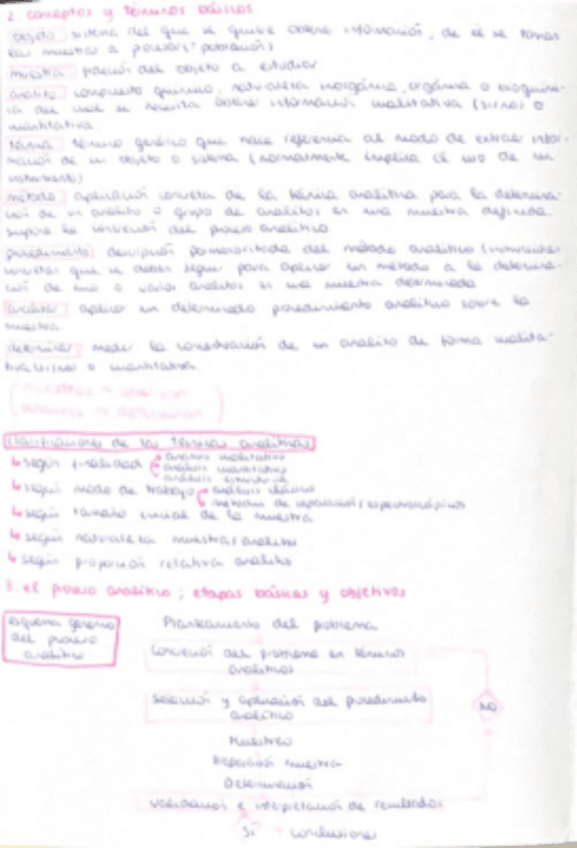 2. conceptos y términos básicos
objeto: sistema del que se quiere obtener información, de él se toman
las muestras a procesar (población)
muestra: porción del objeto a estudiar
analito: compuesto químico, naturaleza inorgánica, orgánica o bioquími-
ca del cual se necesita obtener información cualitativa (si/no) o
cuantitativa.
técnica: término genérico que hace referencia al modo de extraer infor-
mación de un objeto o sistema (normalmente implica el uso de un
instrumento)
método: aplicación concreta de la técnica analítica para la determina-
ción de un analito o grupo de analitos en una muestra definida.
supone la concreción del proceso analítico
procedimiento: descripción pormenorizada del método analítico (instrucciones
concretas que se deben seguir para aplicar un método a la determina-
ción de uno o varios analitos en una muestra determinada
analizar: aplicar un determinado procedimiento analítico sobre la
muestra.
determinar: medir la concentración de un analito de forma cualita-
tiva o cuantitativa.
(muestras → analizan
analitos → determinan)
clasificaciones de las técnicas analíticas
↳ según finalidad análisis cualitativo
análisis cuantitativo
análisis estructural
↳ según modo de trabajo análisis clásico
métodos de separación / espectroscópicos
↳ según tamaño inicial de la muestra
↳ según naturaleza muestra / analito
↳ según proporción relativa analito
3. el proceso analítico; etapas básicas y objetivos
esquema general
del proceso
analítico
Planteamiento del problema
Concreción del problema en términos
analíticos
Selección y aplicación del procedimiento
analítico
NO
Muestreo
Preparación muestra
Determinación
validación e interpretación de resultados
SI - conclusiones